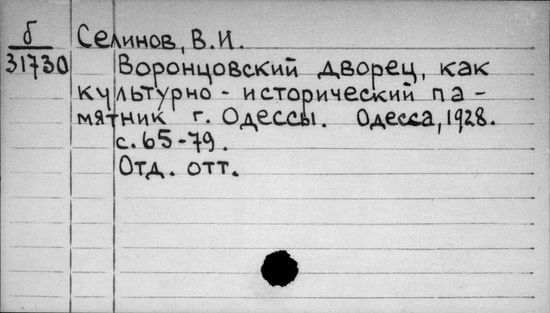 б
31730
Селинов, В.И.
Воронцовский дворец, как
культурно - исторический па-
мятник г. Одессы. Одесса, 1928.
с. 65-79.
Отд. отт.